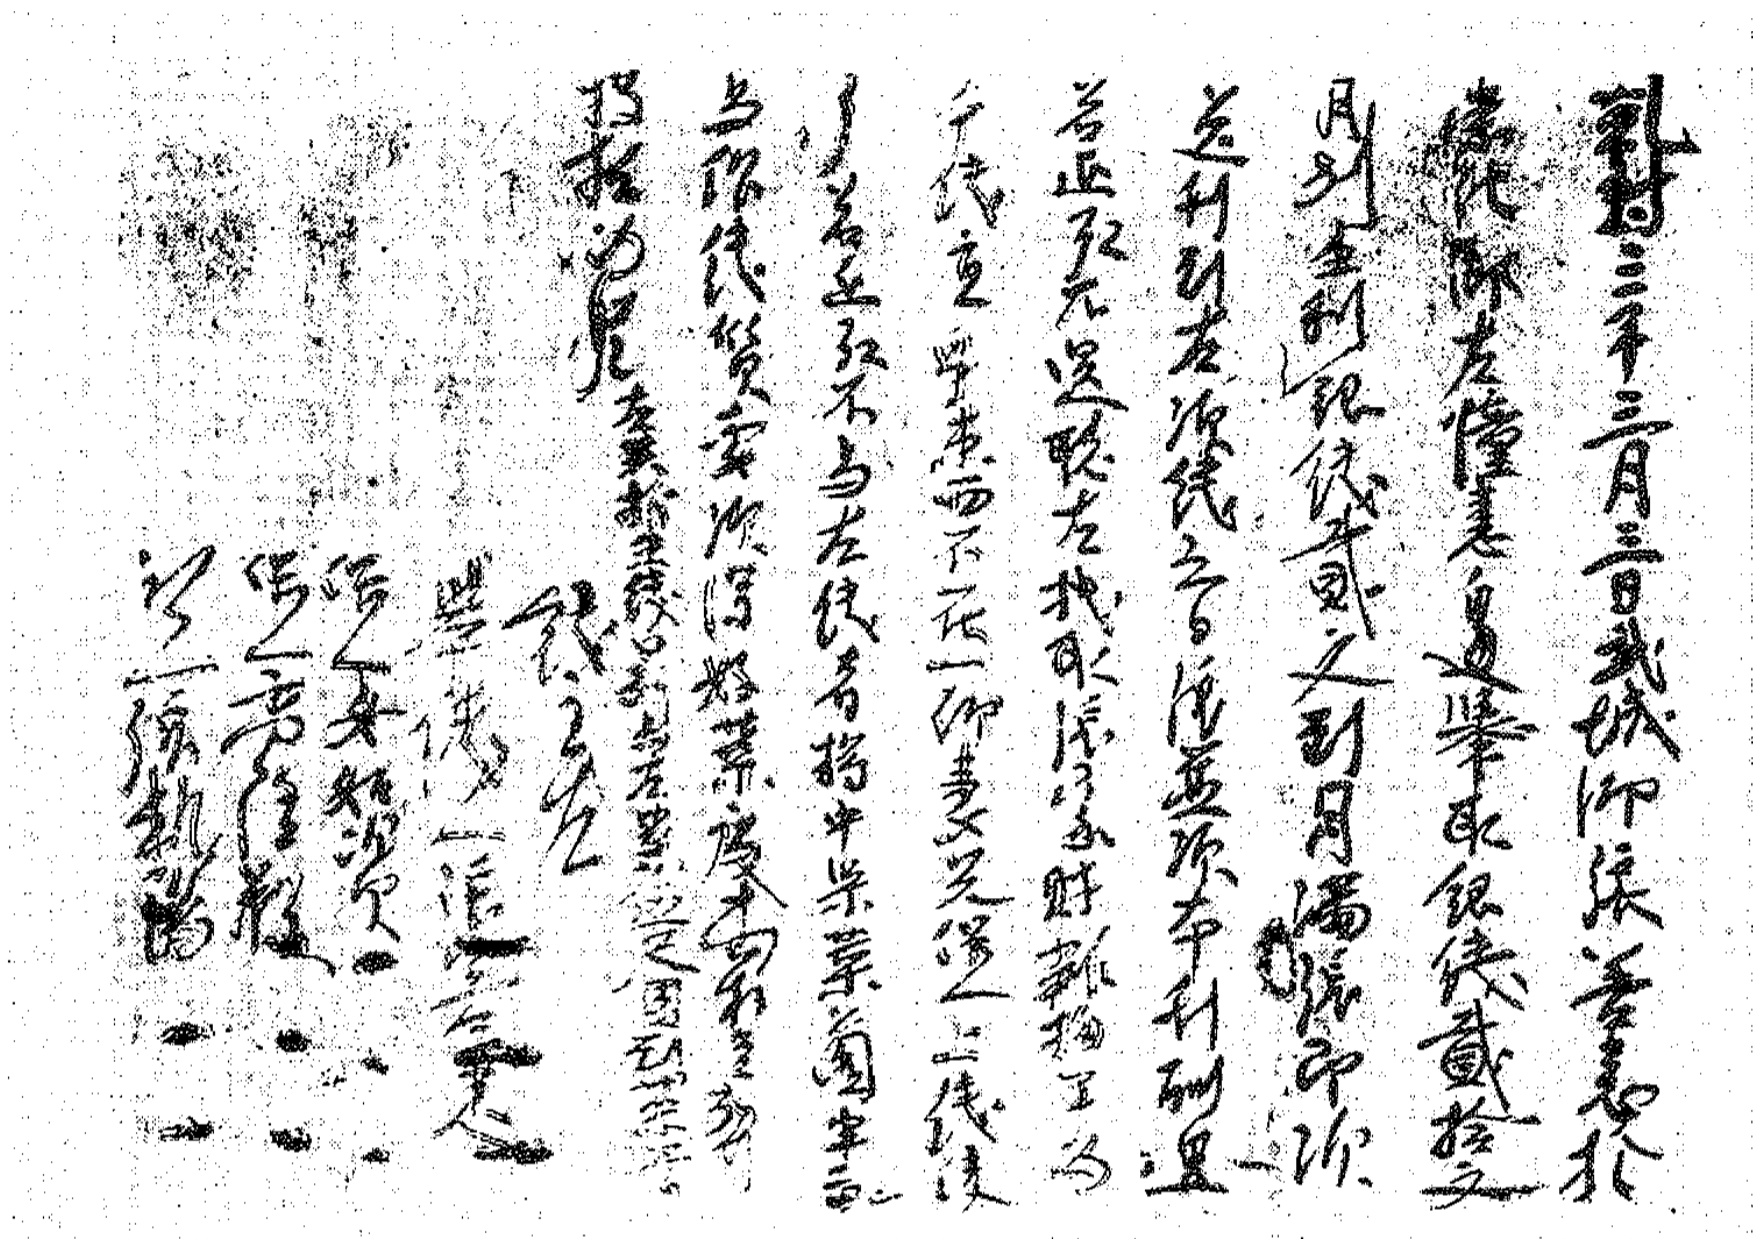 乾封三年三月三日武城鄉張善憙於
崇化鄉左憧憙邊舉取銀錢貳拾文
月別生利銀錢貳文到月滿張即須
送利到左須錢之日張並須本利酬還
若延引不還聽左拽取張家財雜物平為
本錢直身東西不在一仰妻兒保人上錢使
了若延引不与左錢者將中渠菜園半畝
与作錢質要須得好菜處兩和立契
獲指為驗左共折生錢日別与左菜伍尺園到菜乾日
錢主左
舉錢人張善憙
保人女如資
保人高隆歡
知見人張軌端